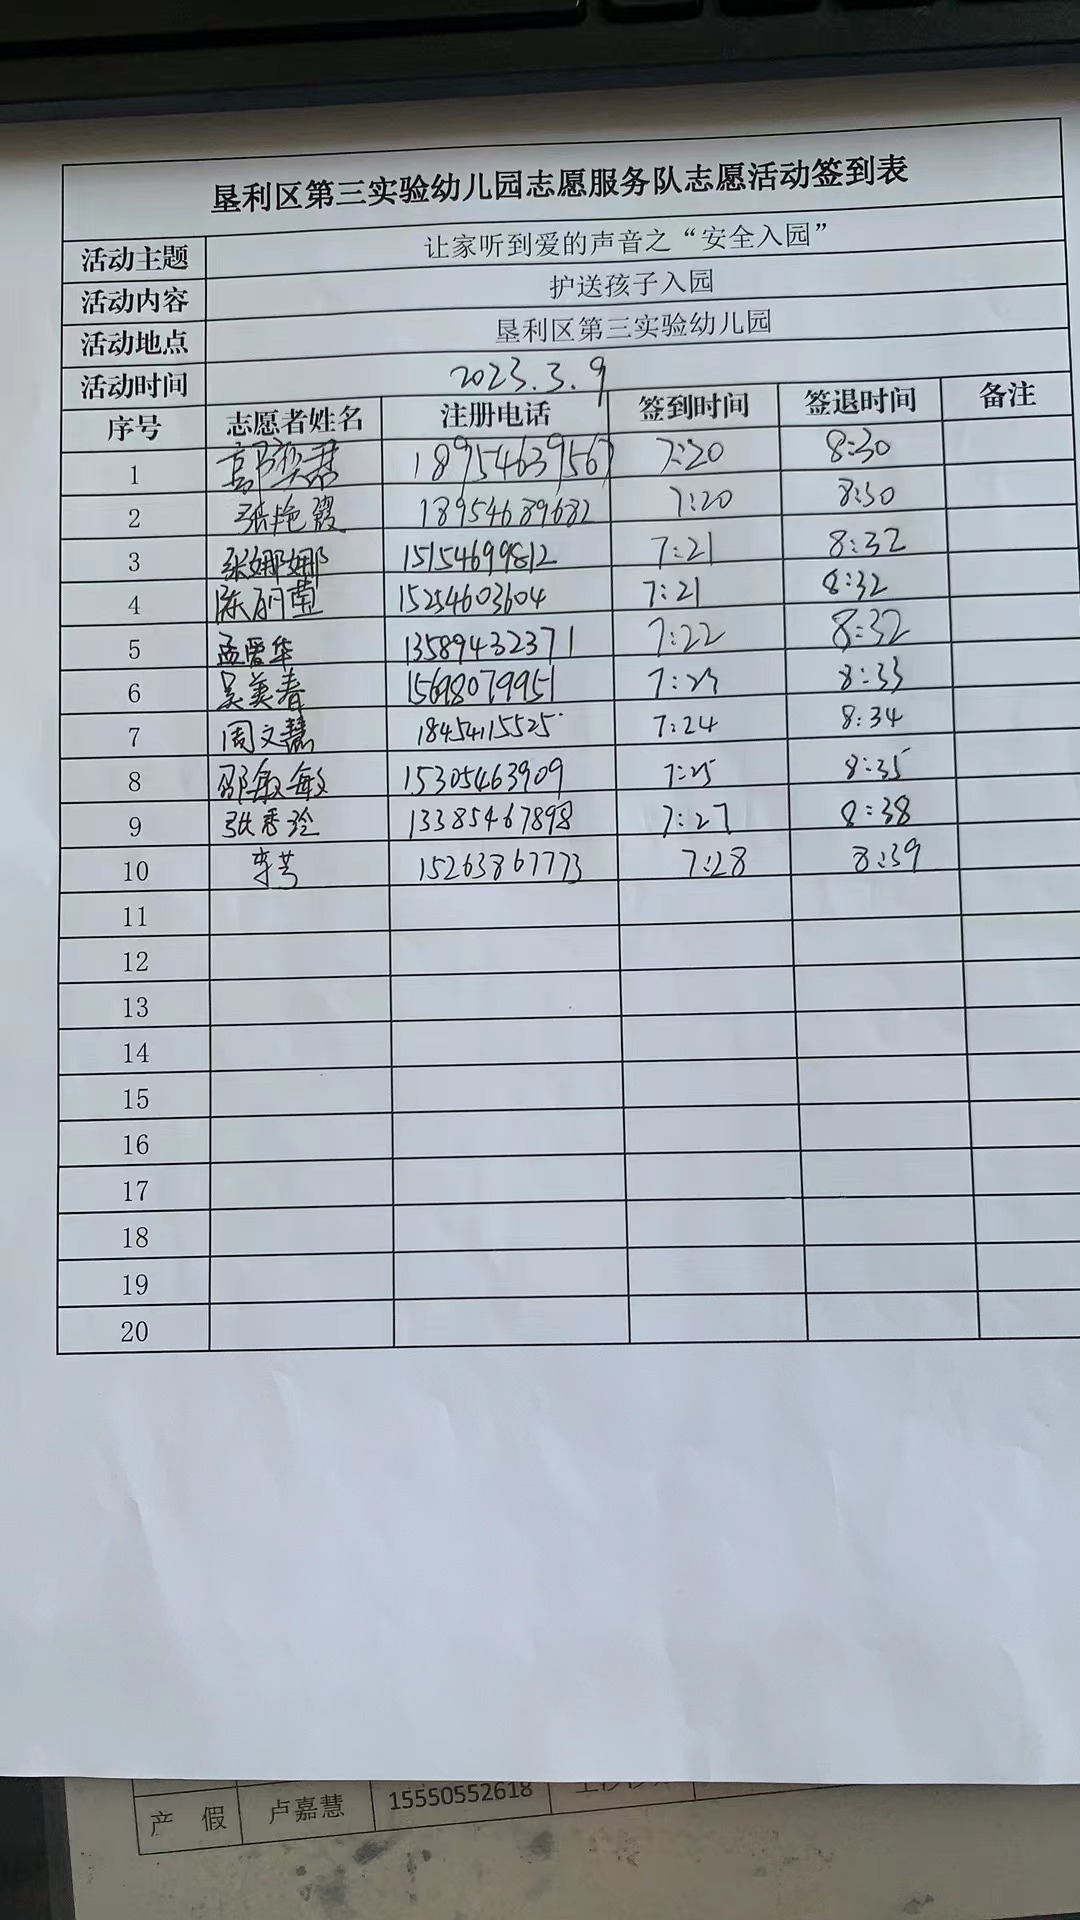 垦利区第三实验幼儿园志愿服务队志愿活动签到表
活动主题 让家听到爱的声音之“安全入园”
活动内容 护送孩子入园
活动地点 垦利区第三实验幼儿园
活动时间 2023.3.9
序号 志愿者姓名 注册电话 签到时间 签退时间 备注
1 18954639567 7:20 8:30
2 张艳霞 18954689682 7:20 8:30
3 张娜娜 15154699812 7:21 8:32
4 15254603604 7:21 8:32
5 孟爱华 13589432371 7:22 8:32
6 吴美春 15698079951 7:23 8:33
7 周文慧 18454115525 7:24 8:34
8 邵敏敏 15305463909 7:25 8:35
9 张秀玲 13385467898 7:27 8:38
10 李芳 15263867773 7:28 8:39
11
12
13
14
15
16
17
18
19
20
产 假 卢嘉慧 15550552618